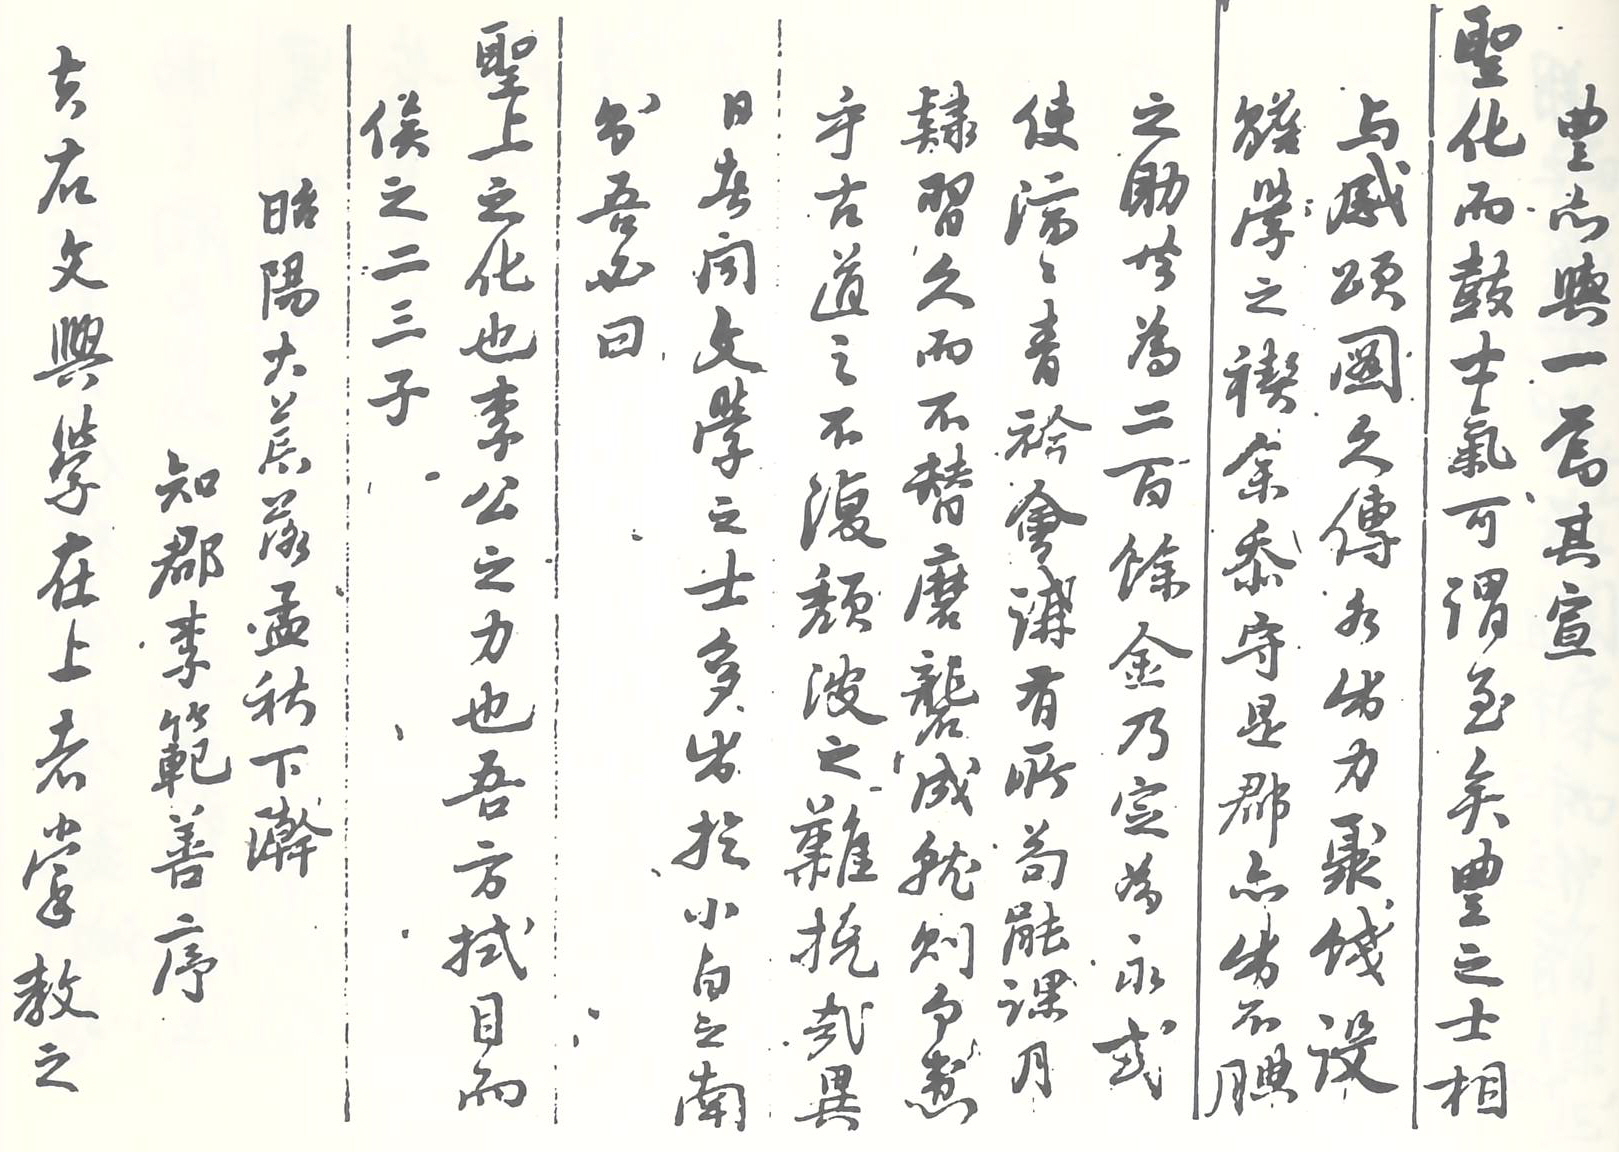 豊亦與一焉其宣
聖化而鼓士氣可謂至矣豊之士相
与感頌圖久傳各出力聚錢設
贍學之禊余忝守是郡亦出不腆
之助共為二百餘金乃定為永式
使濟〻青衿會講有所苟能課月
隸習久而不替磨礱成就則何患
乎古道之不復頹波之難挽哉異
日若聞文學之士多出於小白之南
吾必曰
聖上之化也李公之力也吾方拭目而
俟之二三子
昭陽大荒落孟秋下澣
知郡李範善序
去右文興學在上者掌教之